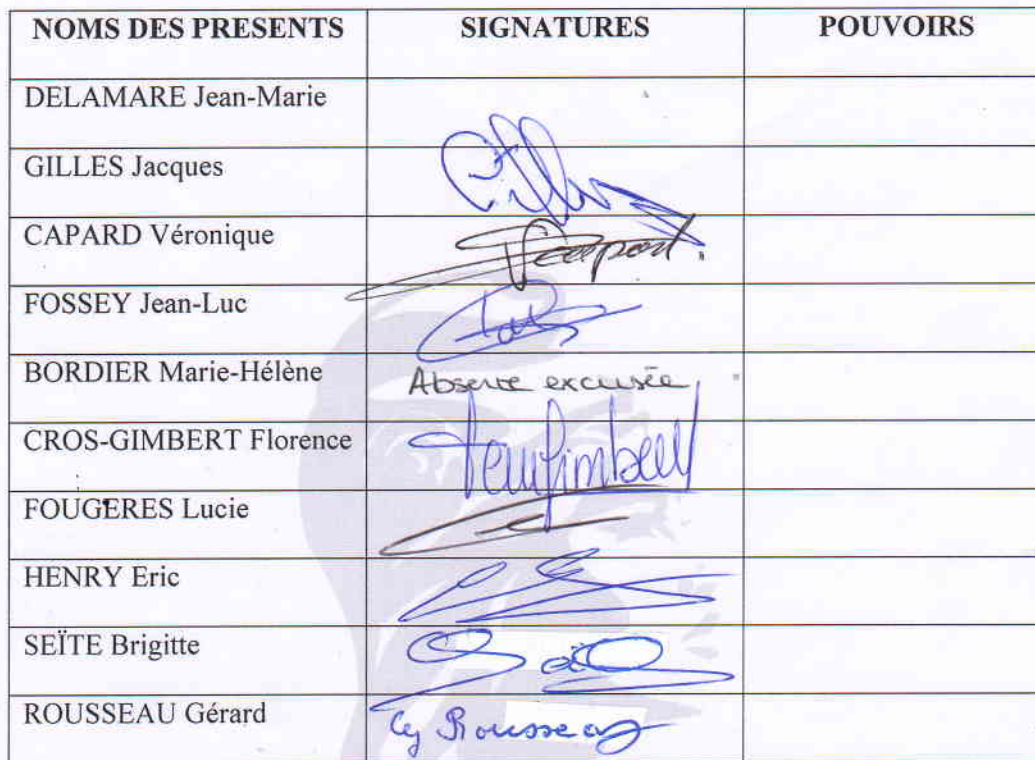 NOMS DES PRESENTS SIGNATURES POUVOIRS
DELAMARE Jean-Marie
GILLES Jacques
CAPARD Véronique Capard
FOSSEY Jean-Luc
BORDIER Marie-Hélène Absente excusée
CROS-GIMBERT Florence
FOUGERES Lucie
HENRY Eric
SEÏTE Brigitte
ROUSSEAU Gérard G Rousseau